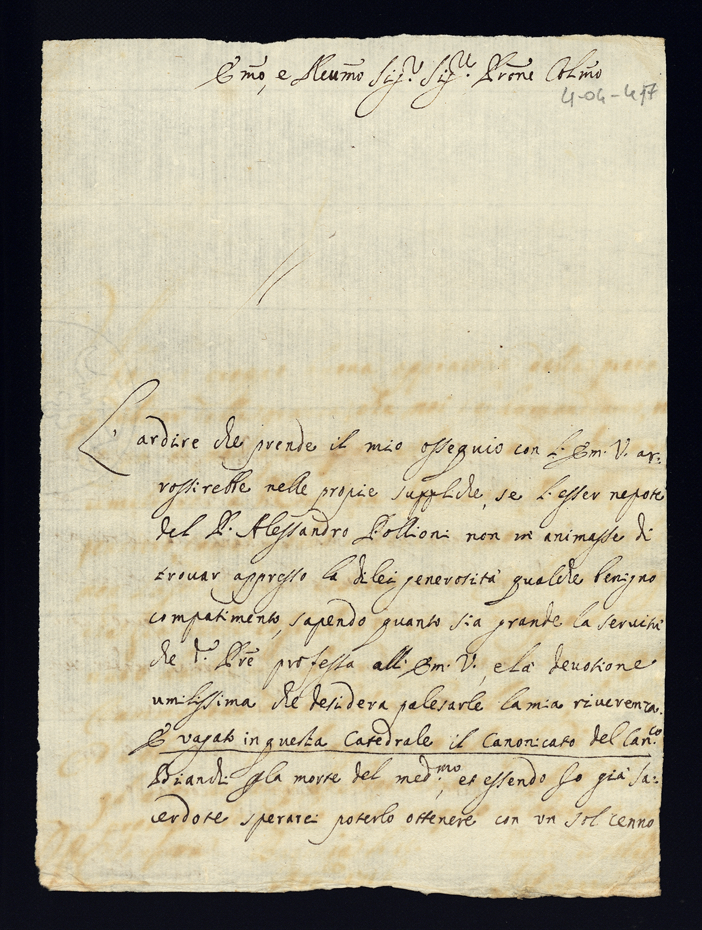 Em̃o, e Reum̃o Sig.r Sig.r Pr̃one Colm̃o
4-04-457
L' ardire che prende il mio ossequio con l'Em. V. ar:
rossirebbe nelle propie suppliche, se l'esser nepote
del P. Alessandro Pollioni non m'animasse di
trovar appresso la di lei generosità qualche benigno
compatimento, sapendo quanto sia grande la servitù
che d.o Prẽ professa all'Em. V., e la devotione
umilissima che desidera palesarle la mia riverenza.
E vagato in questa Catedrale il Canonicato del Can.co
Bianchi p la morte del med.mo, et essendo Io già sa:
cerdote sperarei poterlo ottenere con vn sol cenno